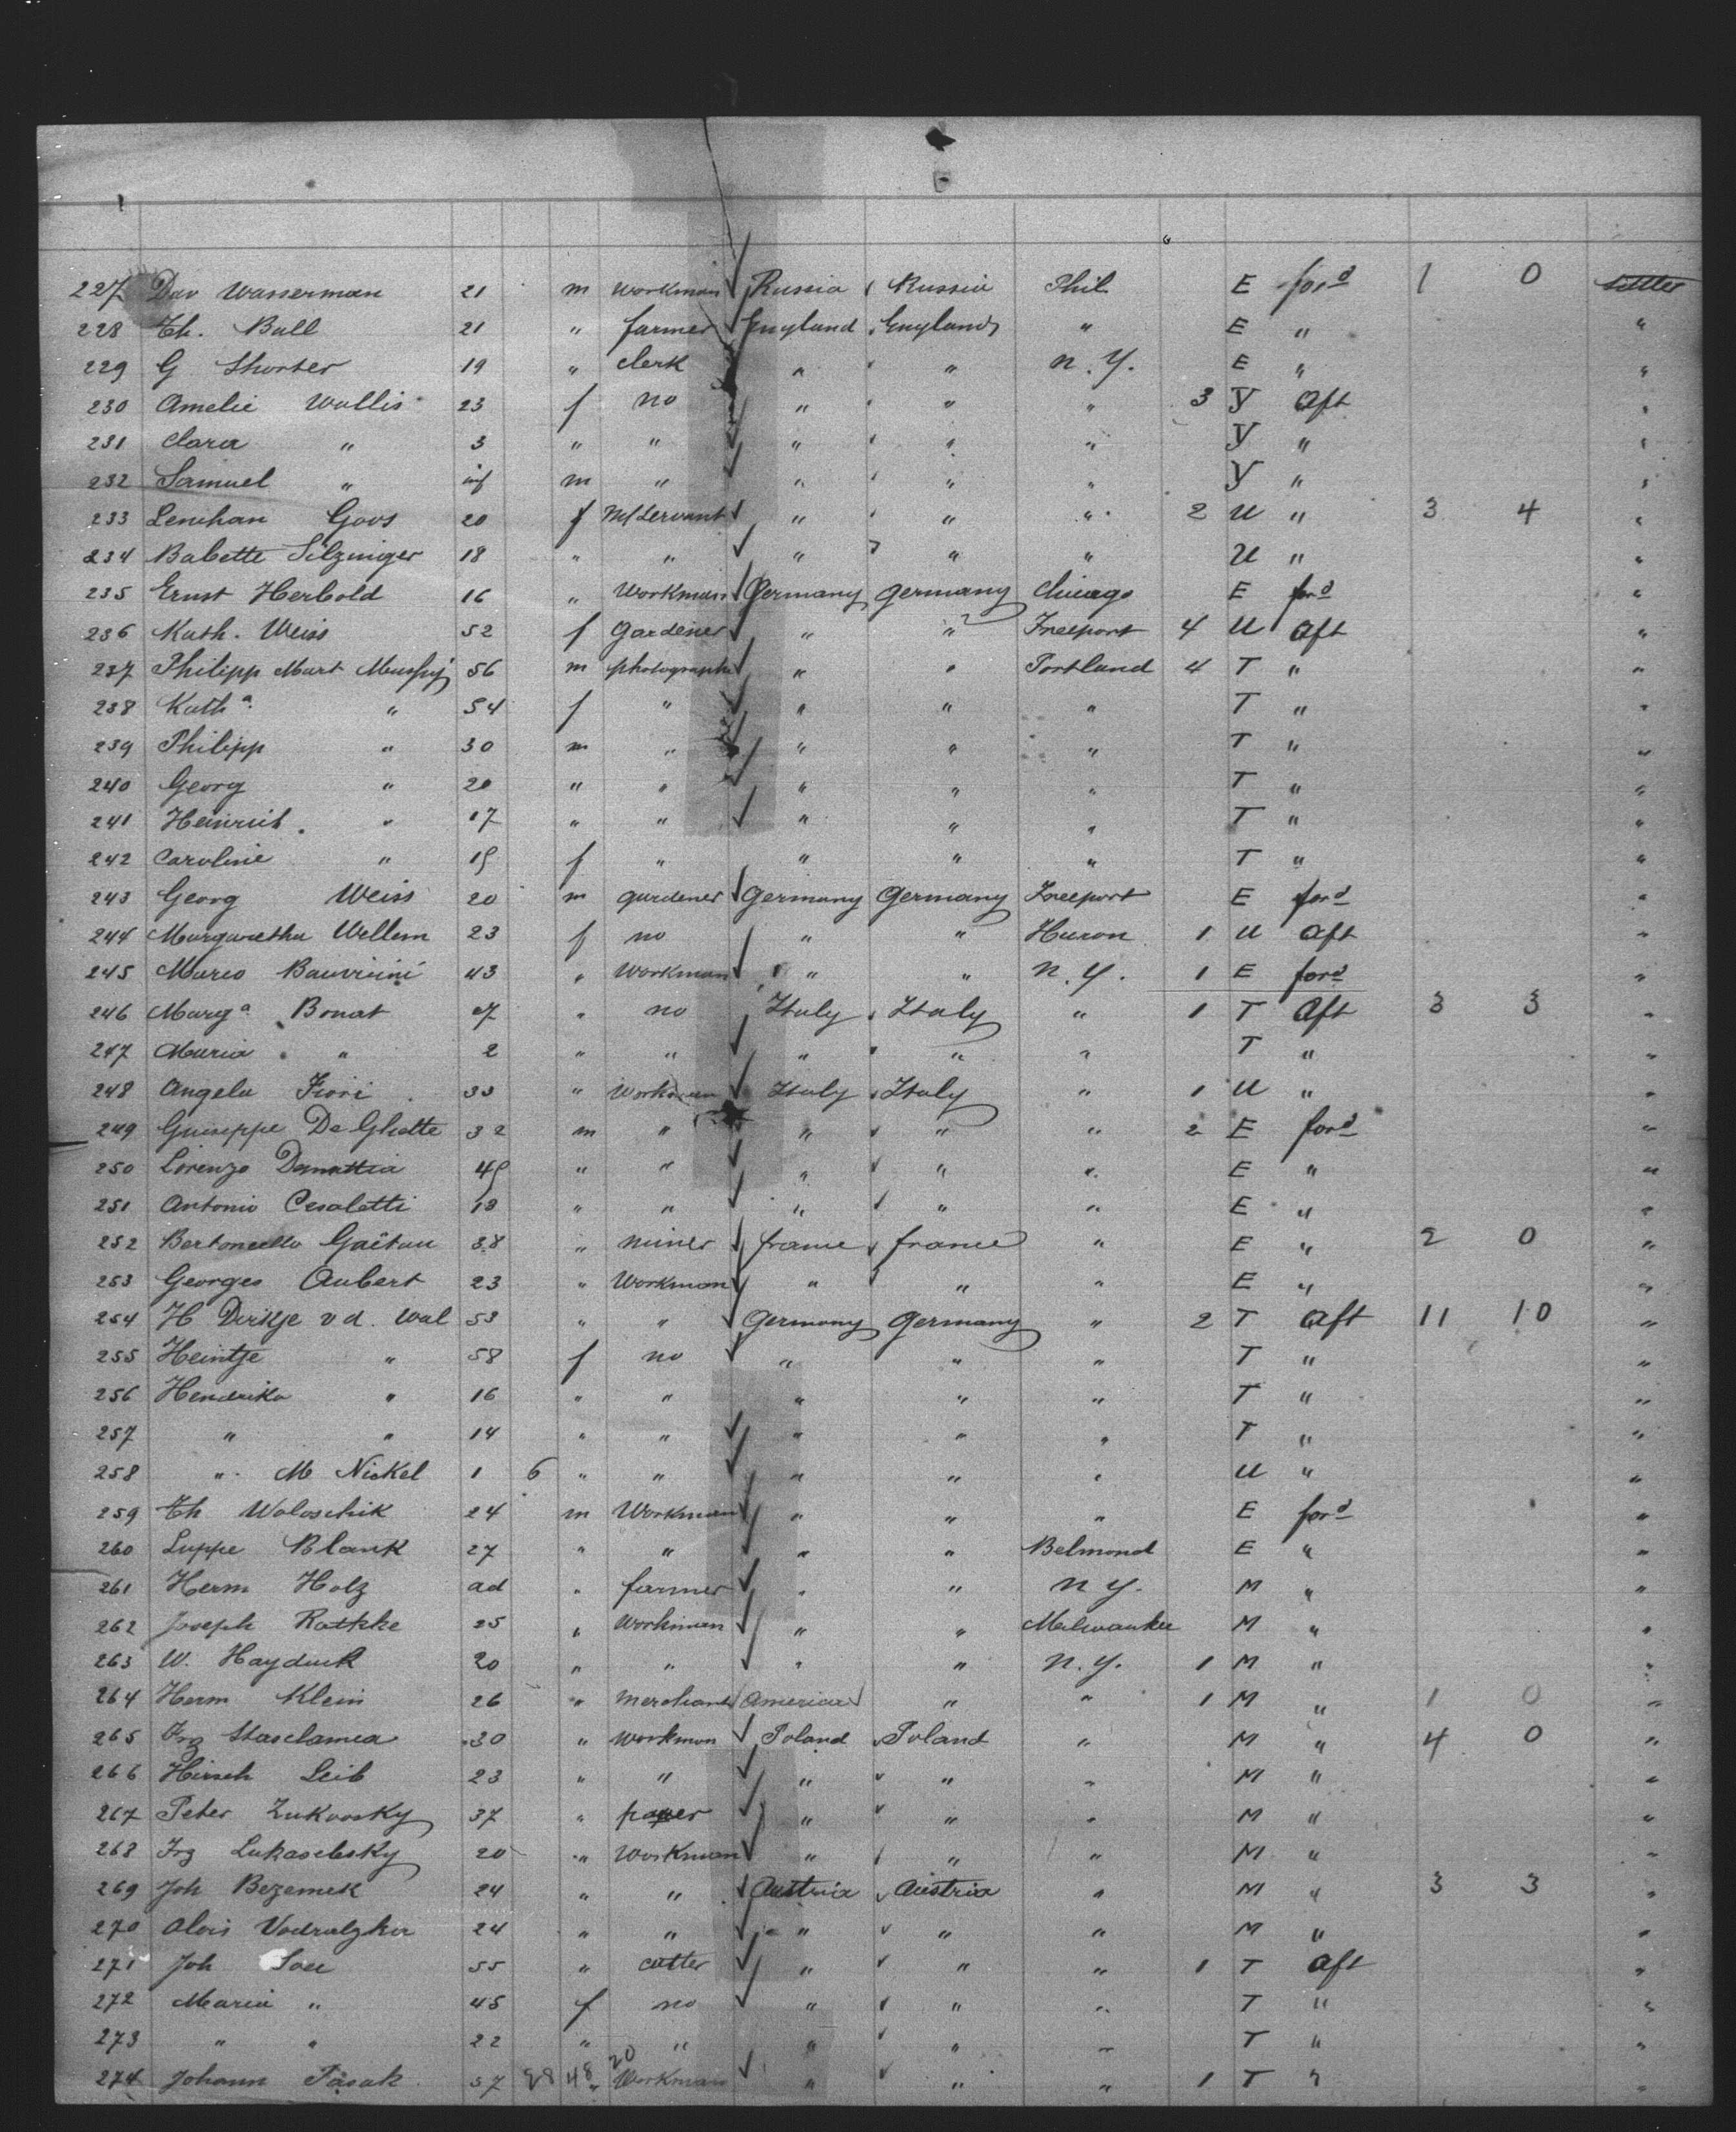 227 Dav Wasserman 21 m workman Russia Russia Phil E for^d 1 0 settler
228 Th. Ball 21 " farmer England England " E " "
229 G Shorter 19 " clerk " " N.Y. E " "
230 Amelie Wallis 23 f no " " " 3 Y Aft "
231 Clara " 3 " " " " " Y " "
232 Samuel " inf m " " " " Y " "
233 Lenchan Goos 20 f M/Servant " " " 2 U " 3 4 "
234 Babette Silzinger 18 " " " " " U " "
235 Ernst Herbold 16 " Workman Germany Germany Chicago E for^d "
236 Kath. Weiss 52 f Gardener " " Freeport 4 U Aft "
237 Philipp Mart 56 m photograph " " Portland 4 T " "
238 Kath^a " 54 f " " " " T " "
239 Philipp " 30 m " " " " T " "
240 Georg " 20 " " " " " T " "
241 Heinrich " 17 " " " " " T " "
242 Caroline " 15 f " " " " T " "
243 Georg Weiss 20 m gardener Germany Germany Freeport E for^d "
244 Margaretha Wellem 23 f no " " Huron 1 U Aft "
245 Marco 43 " Workman " " N.Y. 1 E for^d "
246 Marg^a Bonat 27 " no Italy Italy " 1 T Aft 3 3 "
247 Maria " 2 " " " " " T " "
248 Angela Fiori 33 " Workman Italy Italy " 1 U " "
249 Guiseppe De Ghette 32 m " " " " 2 E for^d "
250 Lorenzo Demattia 45 " " " " " E " "
251 Antonio Cesoletti 18 " " " " " E " "
252 Bertoncello Gaëtan 38 " miner france france " E " 2 0 "
253 Georges Aubert 23 " Workman " " " E " "
254 H Dirkje v d. Wal 53 " " Germany Germany " 2 T Aft 11 10 "
255 Heintje " 58 f no " " " T " "
256 Hendrika " 16 " " " " " T " "
257 " " 14 " " " " " T " "
258 " M Nickel 1 6 " " " " " U " "
259 Th Woloschik 24 m Workman " " " E for^d "
260 Luppe Blank 27 " " " " Belmond E " "
261 Herm Holz ad " farmer " " N Y. M " "
262 Joseph Rathke 25 " Workman " " Milwaukee M " "
263 W. Hayduck 20 " " " " N.Y. 1 M " "
264 Herm Klein 26 " merchant America " " 1 M " 1 0 "
265 Frz 30 " Workman Poland Poland " M " 4 0 "
266 Hirsch Leib 23 " " " " " M " "
267 Peter Zukovsky 37 " " " " M " "
268 Frz Lukasebsky 20 " Workman " " " M " "
269 Joh Bezemek 24 " " Austria Austria " M " 3 3 "
270 Alois 24 " " " " " M " "
271 Joh 55 " cutter " " " 1 T Aft "
272 Maria " 45 f no " " " T " "
273 " " 22 " " " " " T " "
274 Johann Pasak 57 28 48 " 20 Workman " " " 1 T " "